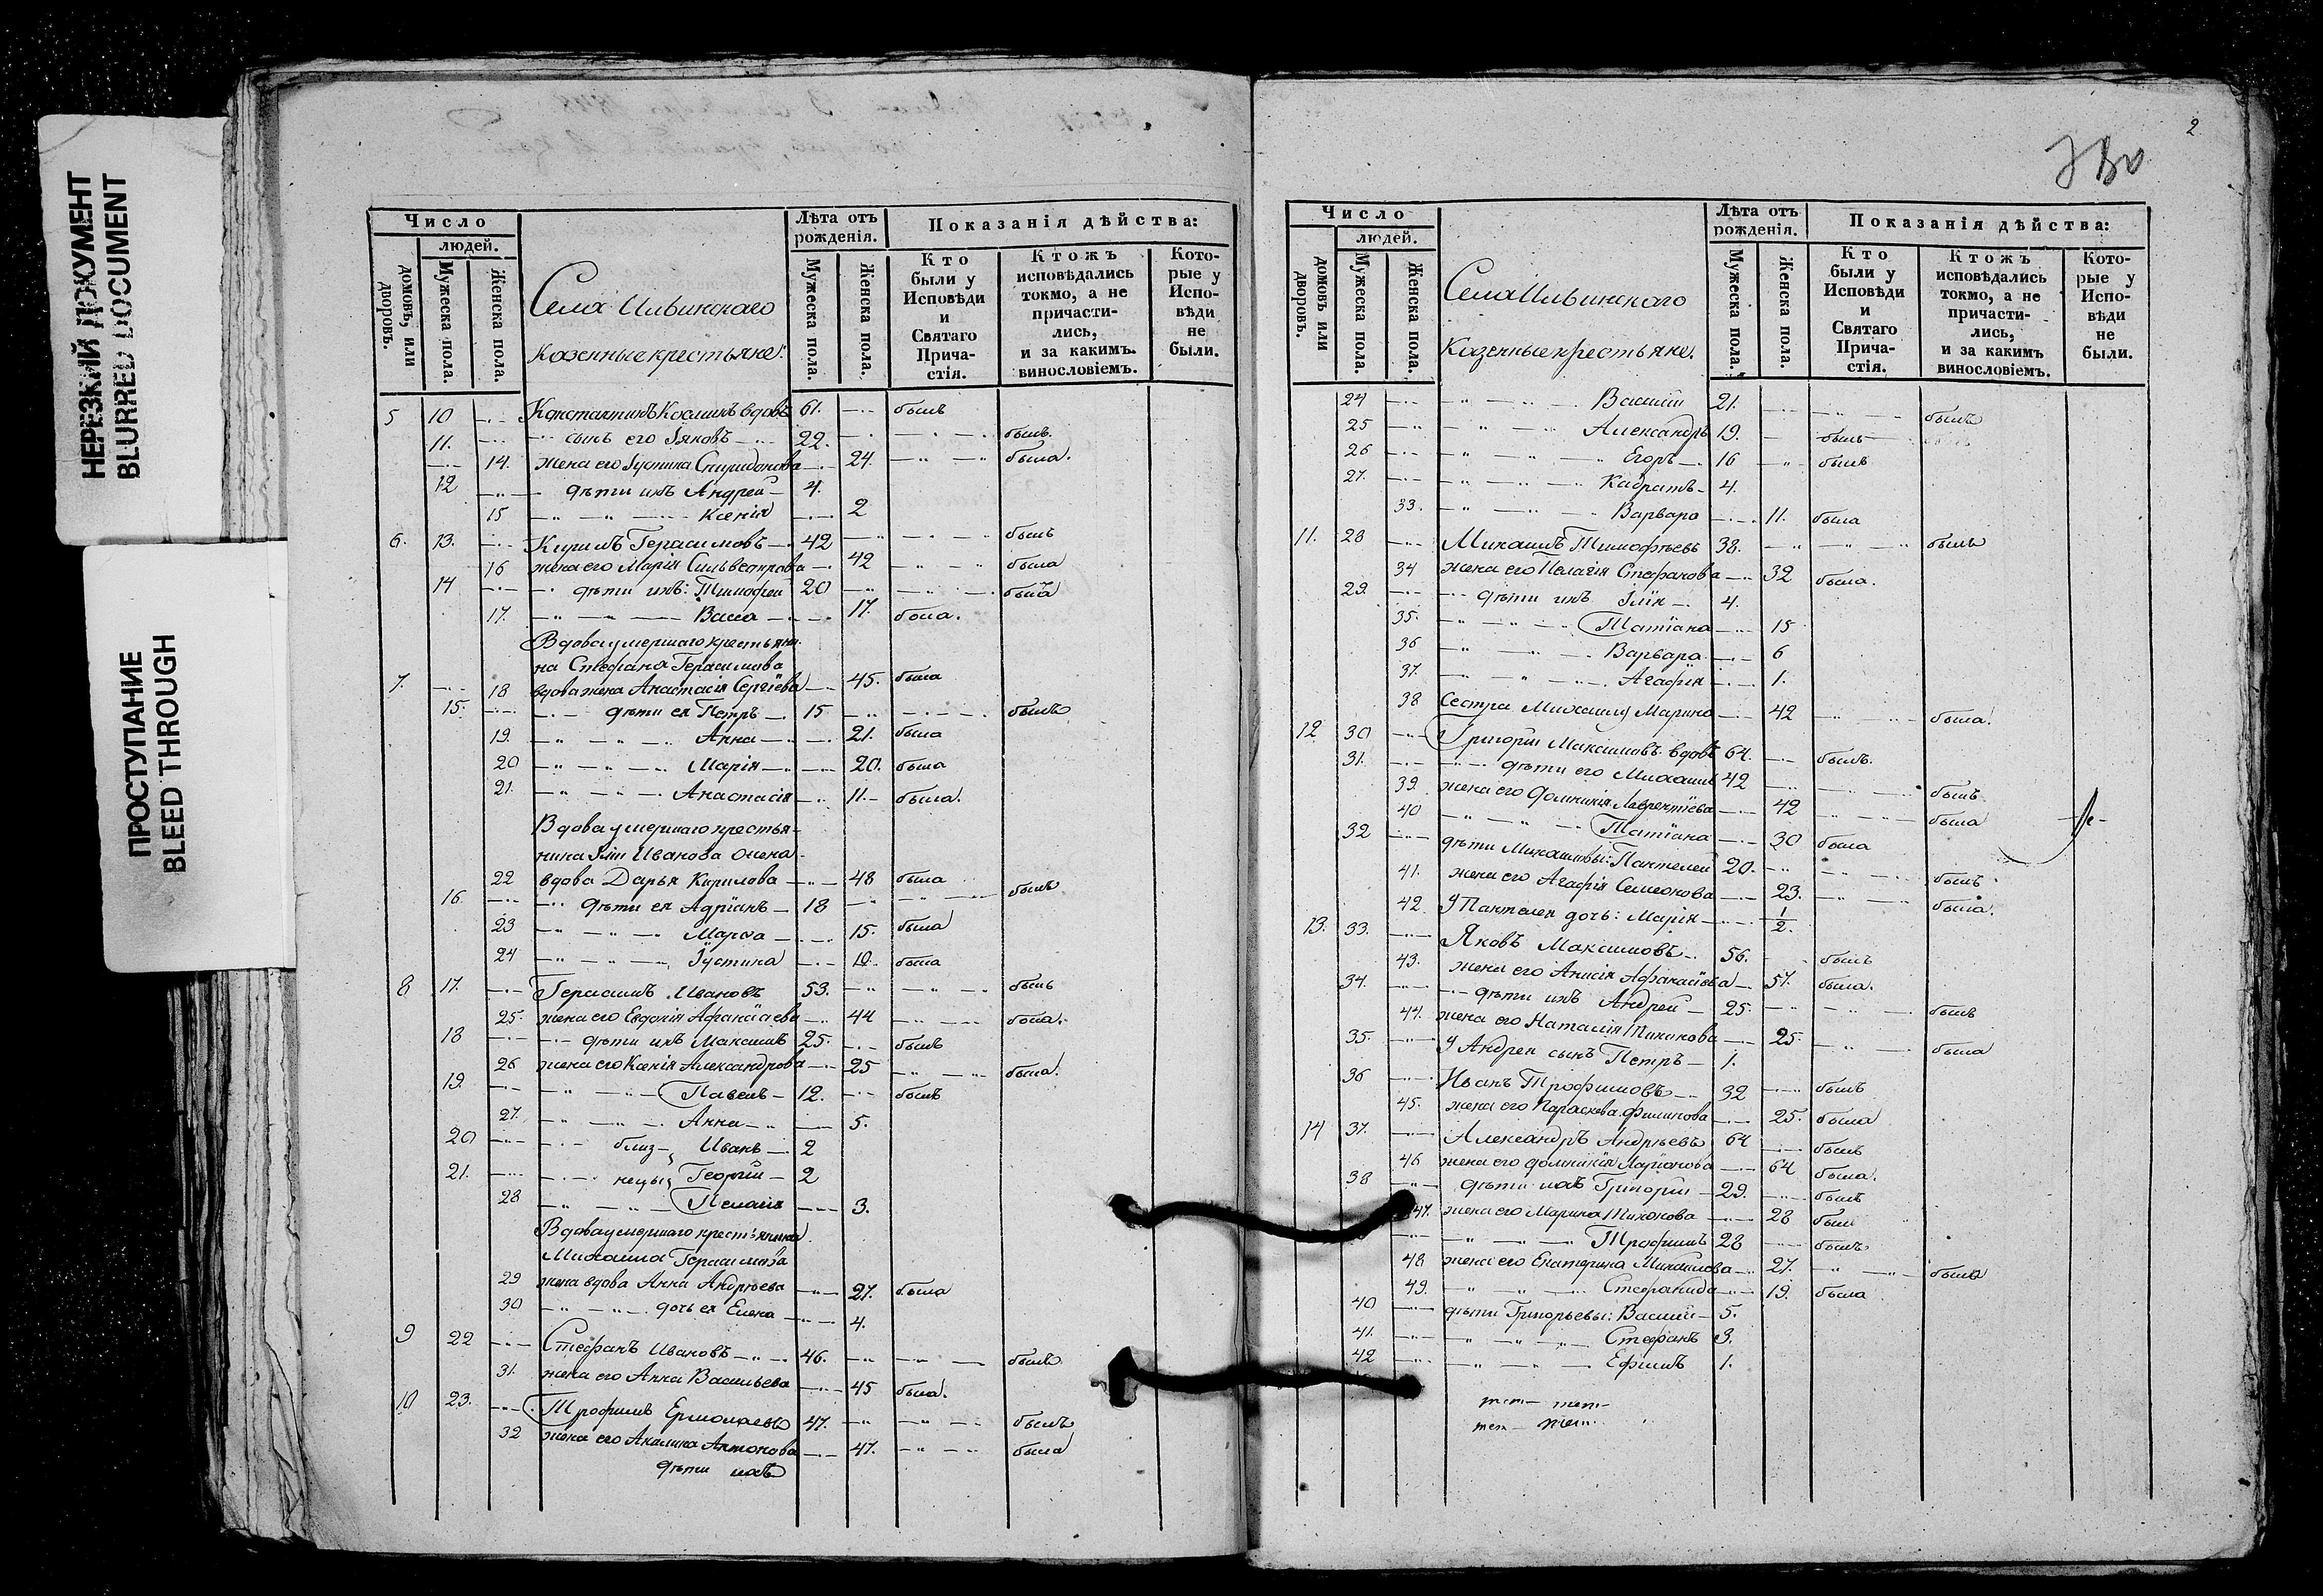 НЕРЕЗКИЙ ДОКУМЕНТ
BLURRED DOCUMENT
ПРОСТУПАНИЕ
BLEED THROUGH
Число
людей.
домовъ, или дворовъ.
Мужеска пола.
Женска пола.
Села Ильинскаго
Казенные крестьяне:
Лѣта отъ рожденія.
Мужеска пола.
Женска пола.
Показанія дѣйства:
Кто были у Исповѣди и Святаго Причастія.
Ктожъ исповѣдались токмо, а не причастились, и за какимъ винословіемъ.
Которые у Исповѣди не были.
5 10 Константинъ Косминъ вдовъ 61. былъ
11. сынъ его Іяковъ 22. былъ.
14. жена его Іустина Спиридонова 24. была.
12 дѣти ихъ Андрей 4.
15 Ксенія 2
6. 13. Кирилъ Герасимовъ 42 былъ
16 жена его Марія Сильвестрова 42 была
14 дѣти ихъ: Тимофей 20 былъ
17. Васса 17. была.
Вдова умершаго крестьяни-
на Стефана Герасимова
7. 18 вдова жена Анастасія Сергіева 45. была
15. дѣти ея Петръ 15 былъ
19. Анна 21. была
20 Марія 20. была
21. Анастасія 11. была.
Вдова умершаго крестья-
нина Іліи Иванова жена
22 вдова Дарья Кирилова 48 была
16. дѣти ея Адріанъ 18 былъ
23 Марѳа 15. была
24 Іустина 10. была
8 17. Герасимъ Ивановъ 53. былъ
25. жена его Евдокія Афанасіева 44 была.
18 дѣти ихъ Максимъ 25. былъ
26 жена его Ксенія Александрова 25 была.
19. Павелъ 12. былъ
27. Анна 5.
20 близ- Иванъ 2
21. нецы Георгій 2
28 Пелагія 3.
Вдова умершаго крестьянина
Михаила Герасимова
29 жена вдова Анна Андреева 27. была
30 дочь ея Елена 4.
9 22 Стефанъ Ивановъ 46. былъ
31. жена его Анна Васильева 45 была.
10 23. Трофимъ Ермолаевъ 47. былъ
32 жена его Акилина Антонова 47. была
дѣти ихъ
2
Число
людей.
домовъ или дворовъ.
Мужеска пола.
Женска пола.
Села Ильинскаго
Казенные крестьяне.
Лѣта отъ рожденія.
Мужеска пола.
Женска пола.
Показанія дѣйства:
Кто были у Исповѣди и Святаго Причастія.
Ктожъ исповѣдались токмо, а не причастились, и за какимъ винословіемъ.
Которые у Исповѣди не были.
24 Василій 21. былъ
25 Александръ 19. былъ
26 Егоръ 16 былъ
27. Кадратъ 4.
33. Варвара 11. была
11. 28 Михаилъ Тимофѣевъ 38. былъ
34 жена его Пелагія Стефанова 32 была.
29. дѣти ихъ Ілія 4.
35. Татіана 15
36 Варвара 6
37. Агафія 1.
38 Сестра Михаила Марина 42 была.
12 30 Григорій Максимовъ вдовъ 64. былъ.
31. дѣти его Михаилъ 42 былъ
39. жена его Домникія Лаврентіева 42 была
40 Татіана 30 была
32 дѣти Михаиловы: Пантелей 20. былъ
41. жена его Агафія Семенова 23. была.
42 У Пантелея дочь: Марія 1/2.
13. 33. Яковъ Максимовъ 56. былъ
43. жена его Анисія Афанасіева 57. была.
34. дѣти ихъ Андрей 25. былъ
44. жена его Наталія Тихонова 25. была
35. У Андрея сынъ Петръ 1.
36 Иванъ Трофимовъ 32 былъ
45. жена его Параскева Филипова 25. была
14 37. Александръ Андреевъ 64 былъ
46 жена его Домникія Ларіонова 64 была.
38 дѣти ихъ Григорій 29. былъ
47. жена его Марина Тихонова 28 была
Трофимъ 28 былъ
48 жена его Екатерина Михаилова 27. была
49. Стефанида 19. была
40 дѣти Григорьевы: Василій 5.
41. Стефанъ 3.
42 Ефимъ 1.